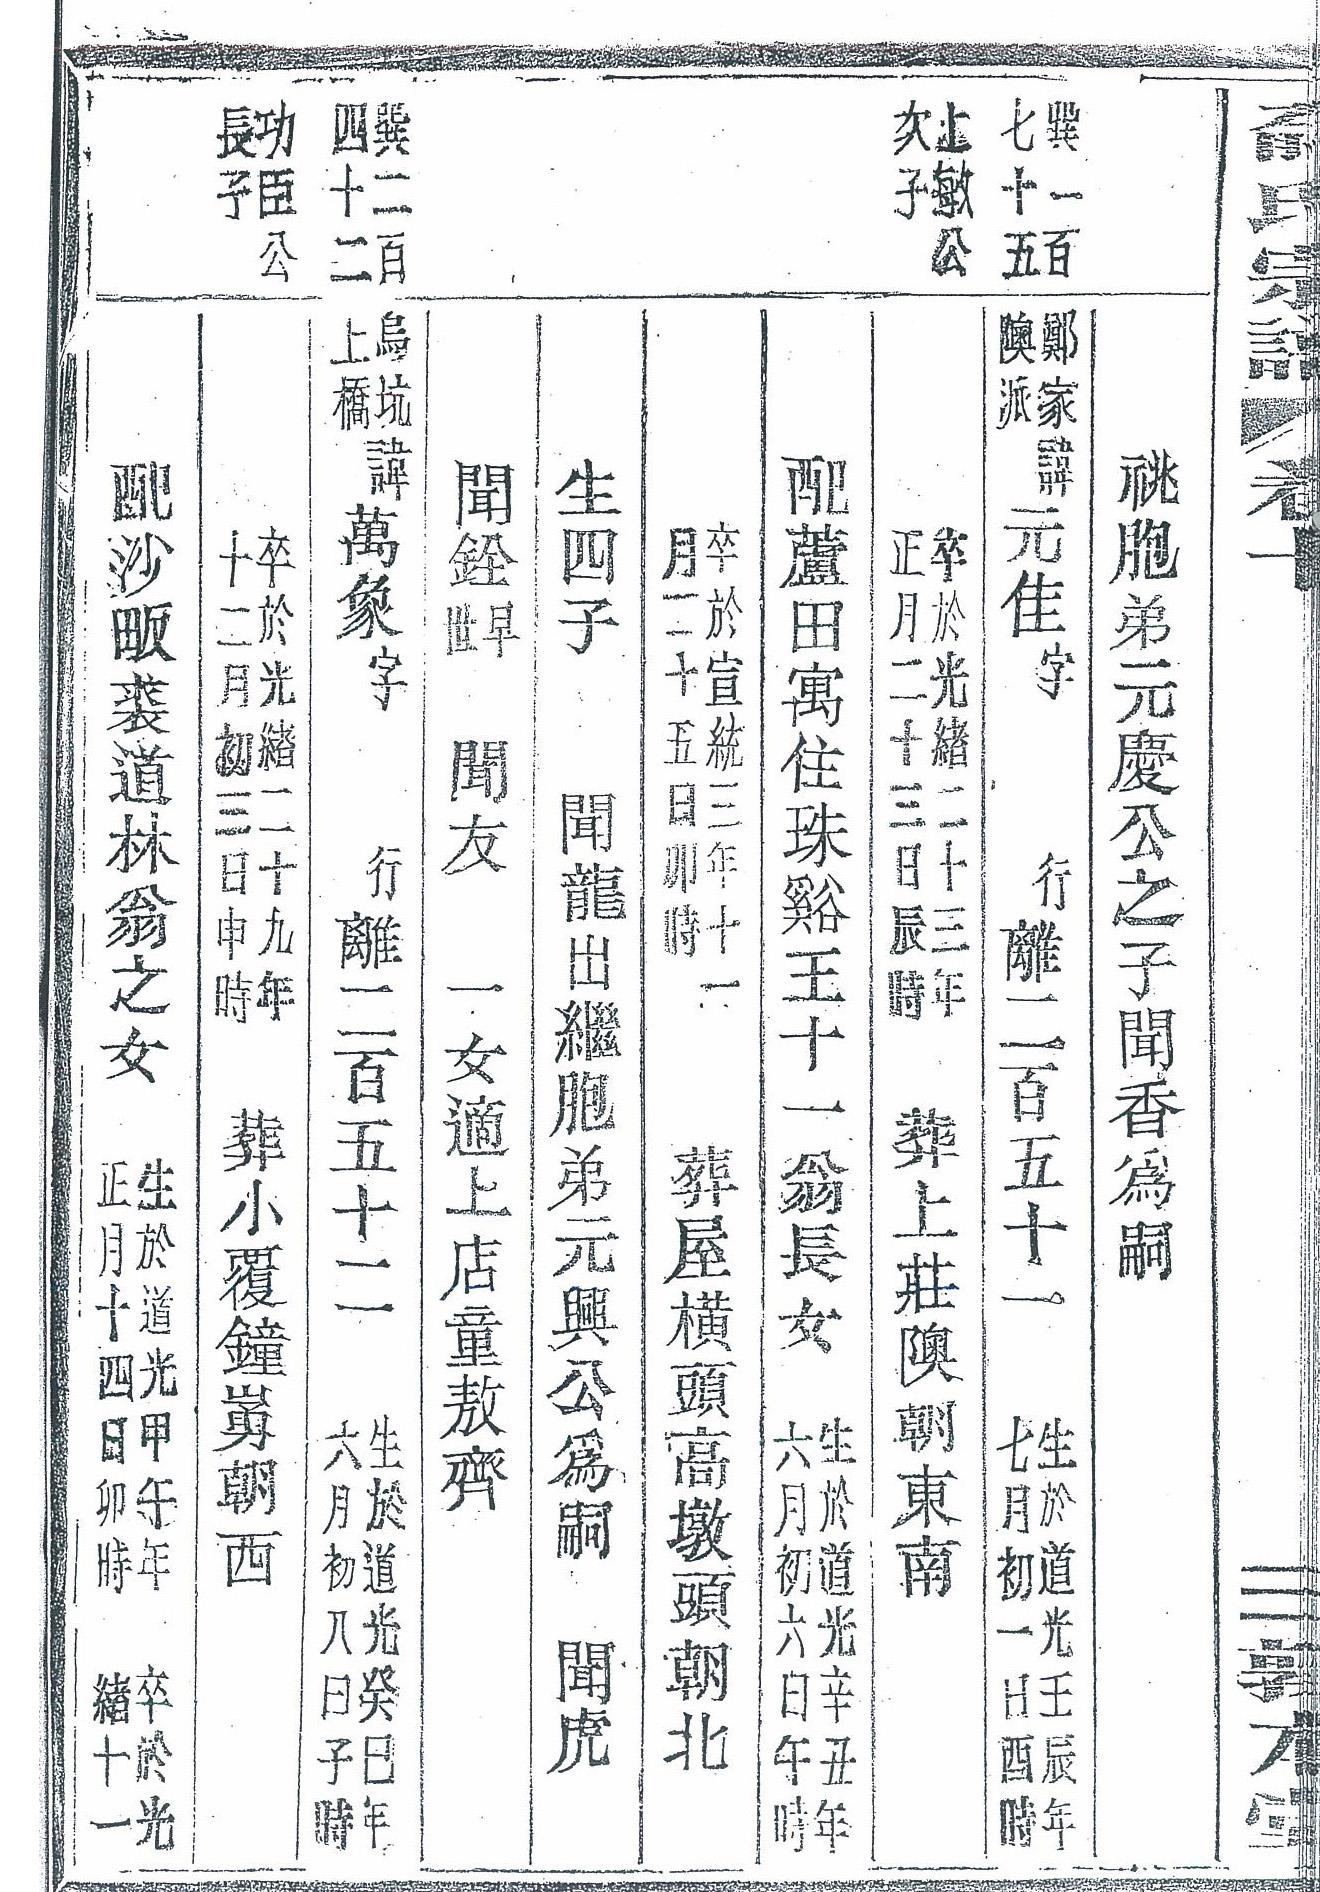 氏宗譜 卷十
祧胞弟元慶公之子聞香爲嗣
巽一百七十五 鄭家隩派 諱元佳字 行離二百五十一 生於道光壬辰年七月初一日酉時
上敏公次子 卒於光緒二十三年正月二十三日辰時 葬上莊隩朝東南
配蘆田寓住珠谿王十一翁長女 生於道光辛丑年六月初六日午時
卒於宣統三年十一月二十五日卯時 葬屋橫頭高墩頭朝北
生四子 聞龍出繼胞弟元興公爲嗣 聞虎
聞銓早世 聞友 一女適上店童敖齊
巽二百四十二 烏坑上橋 諱萬象字 行離二百五十二 生於道光癸巳年六月初八日子時
功臣公長子 卒於光緒二十九年十二月初三日申時 葬小覆鐘朝西
配沙畈裘道林翁之女 生於道光甲午年正月十四日卯時 卒於光緒十一